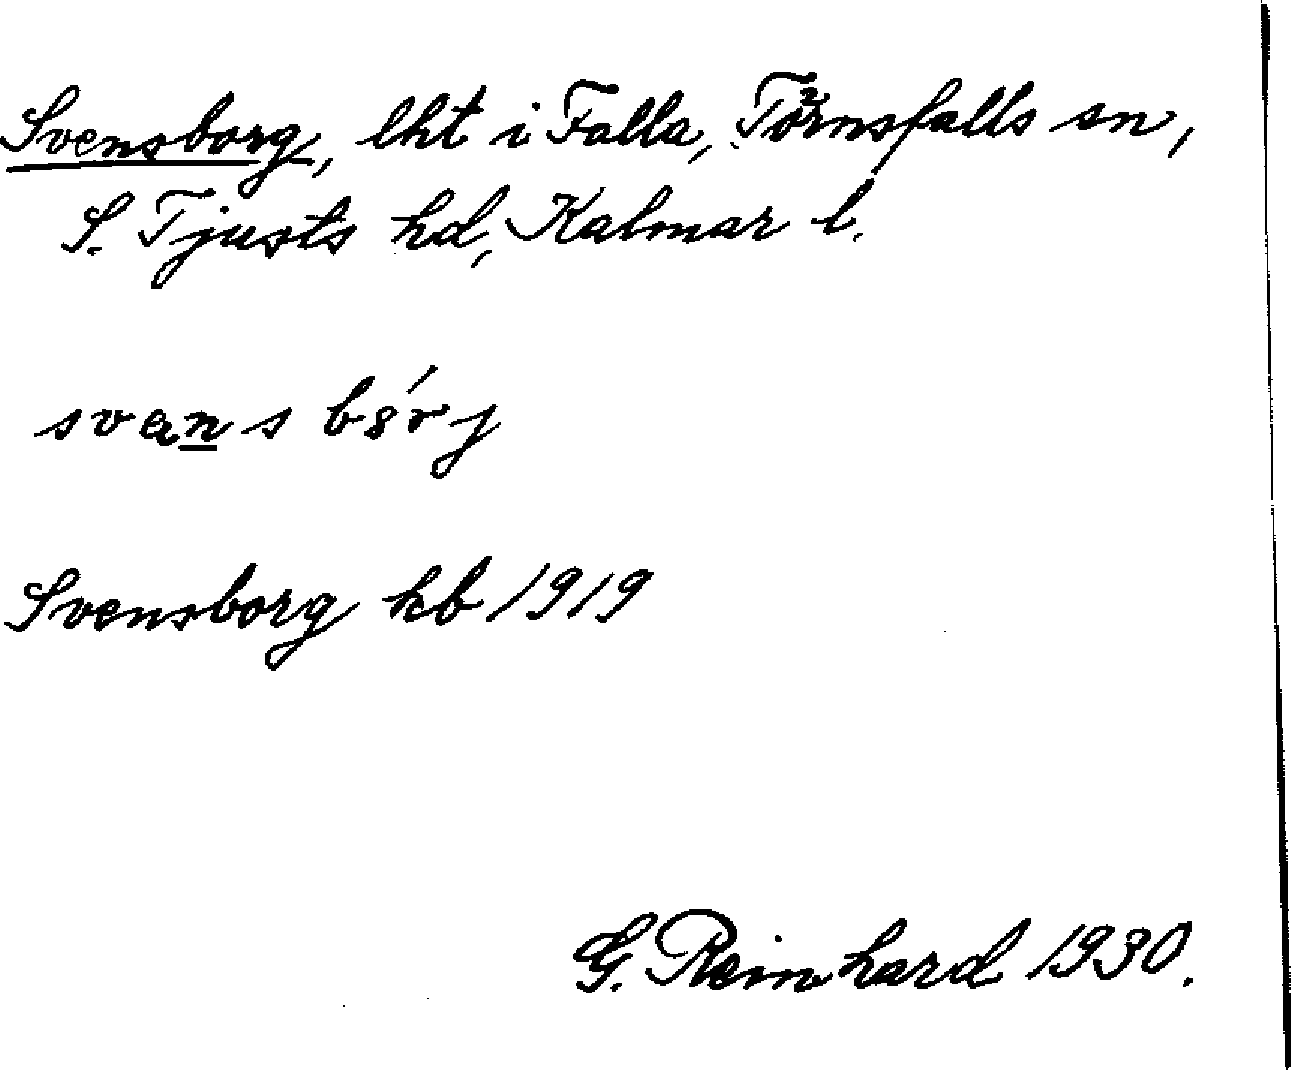 Svensborg, lht i Falla, Törnsfalls sn,
S. Tjusts hd, Kalmar l.
svans bs´rj
Svensborg kb 1919
G. Reinhard 1930.